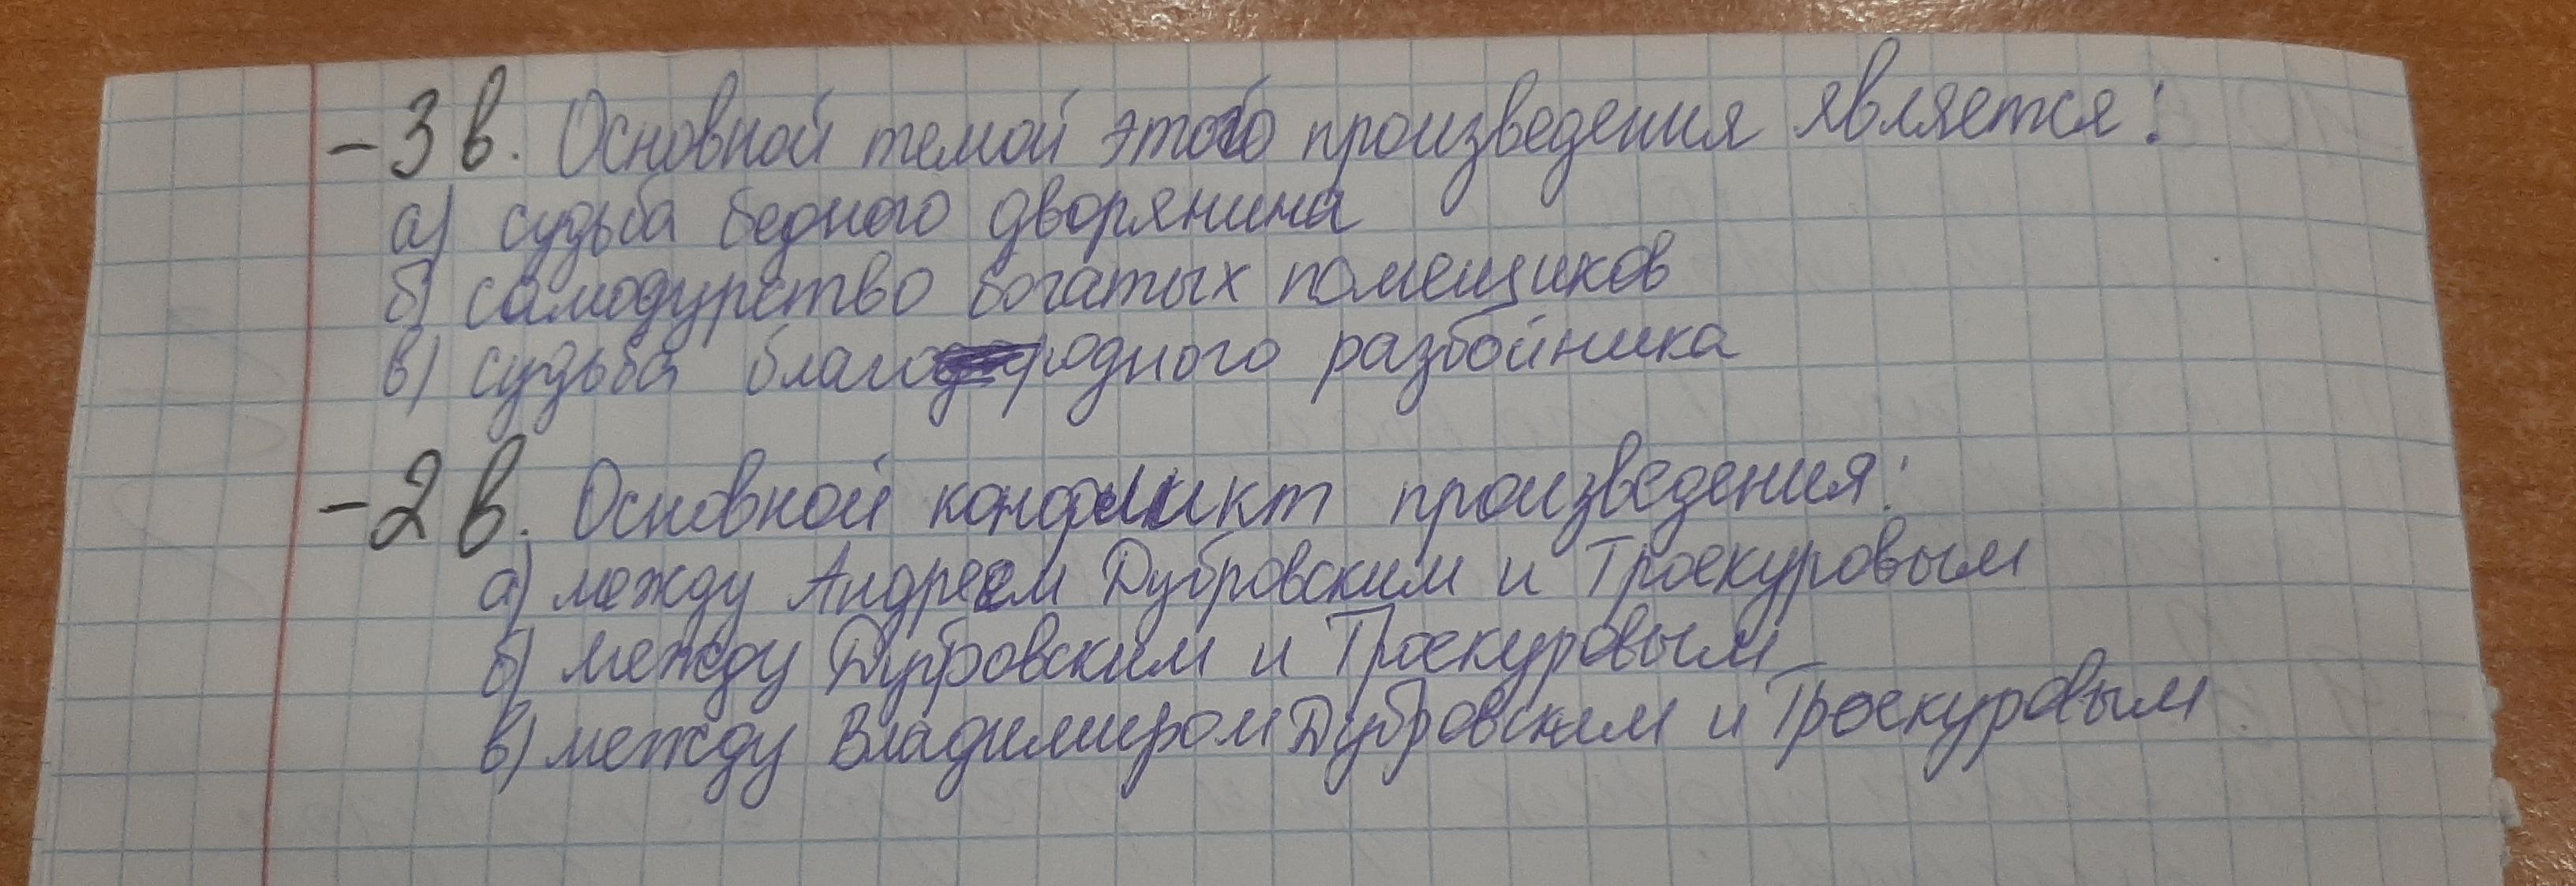 - 3 в. Основной темой этого произведения является:
а) судьба бедного дворянина
б) самодурство богатых помещиков
в) судьба благородного разбойника
- 2 в. Основной конфликт произведения:
а) между Андреем Дубровским и Троекуровым
б) между Дубровским и Троекуровым
в) между Владимиром Дубровским и Троекуровым